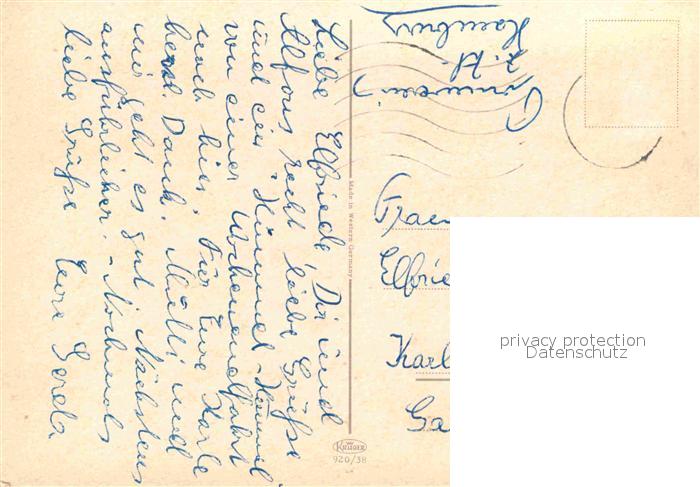 Liebe Elfriede, Dir und
Alfons recht liebe Grüße
und ein "Hummel-Hummel"
von einer Wochenendfahrt
nach hier. Für Eure Karte
herzl Dank. Mutti und
mir geht es gut. Nächstens
ausführlicher. - Nochmals
liebe Grüße Eure Gerda
z. Zt.
Hamburg
Frau
Elfrie
Karl
Ga
Made in Western Germany
KRÜGER
920/38
privacy protection
Datenschutz